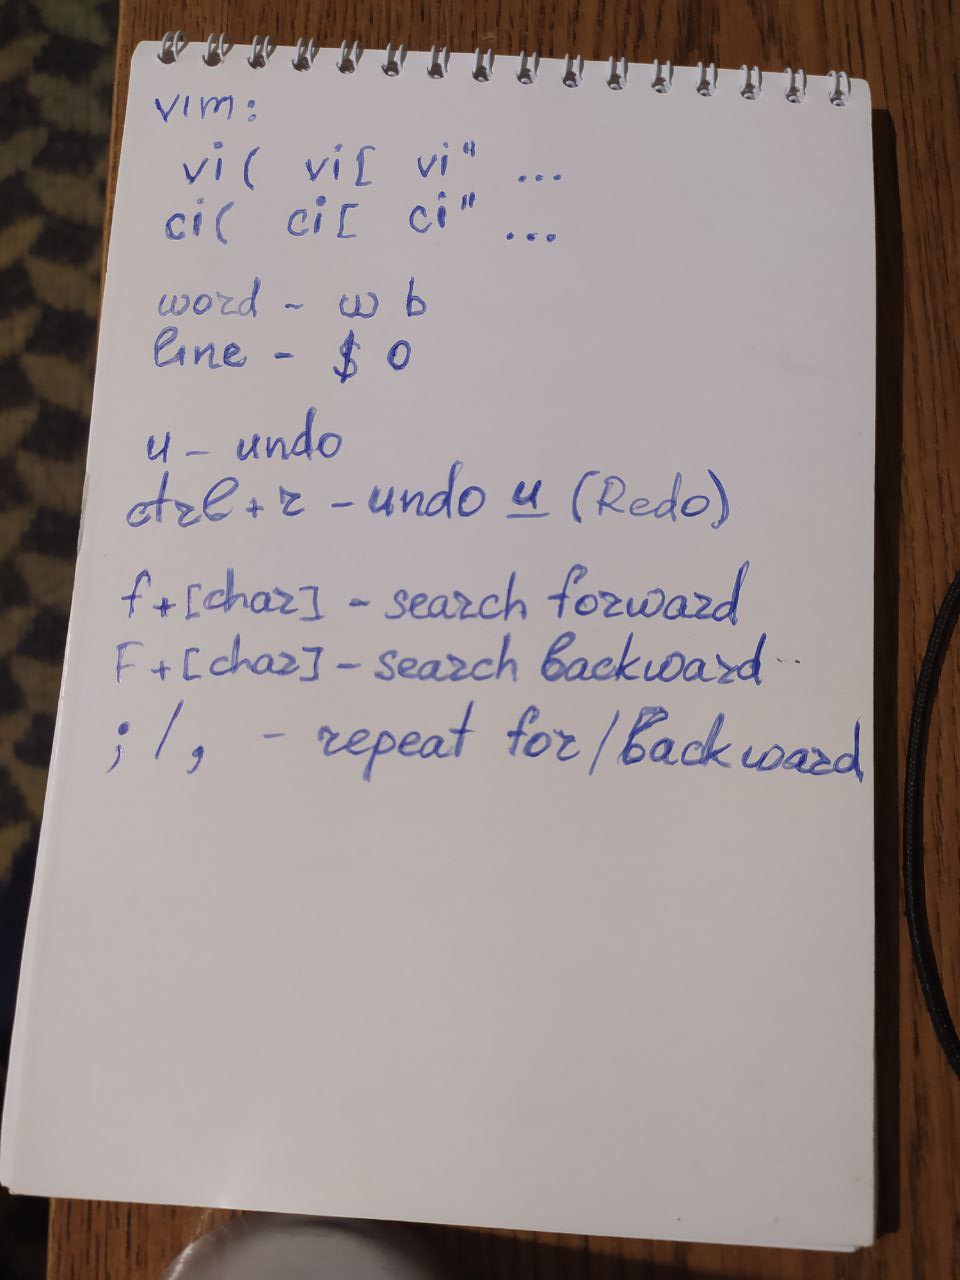 vim:
vi( vi[ vi" ...
ci( ci[ ci" ...
word - w b
line - $ 0
u - undo
ctrl + r - undo u (Redo)
f + [char] - search forward
F + [char] - search backward
; / , - repeat for/backward